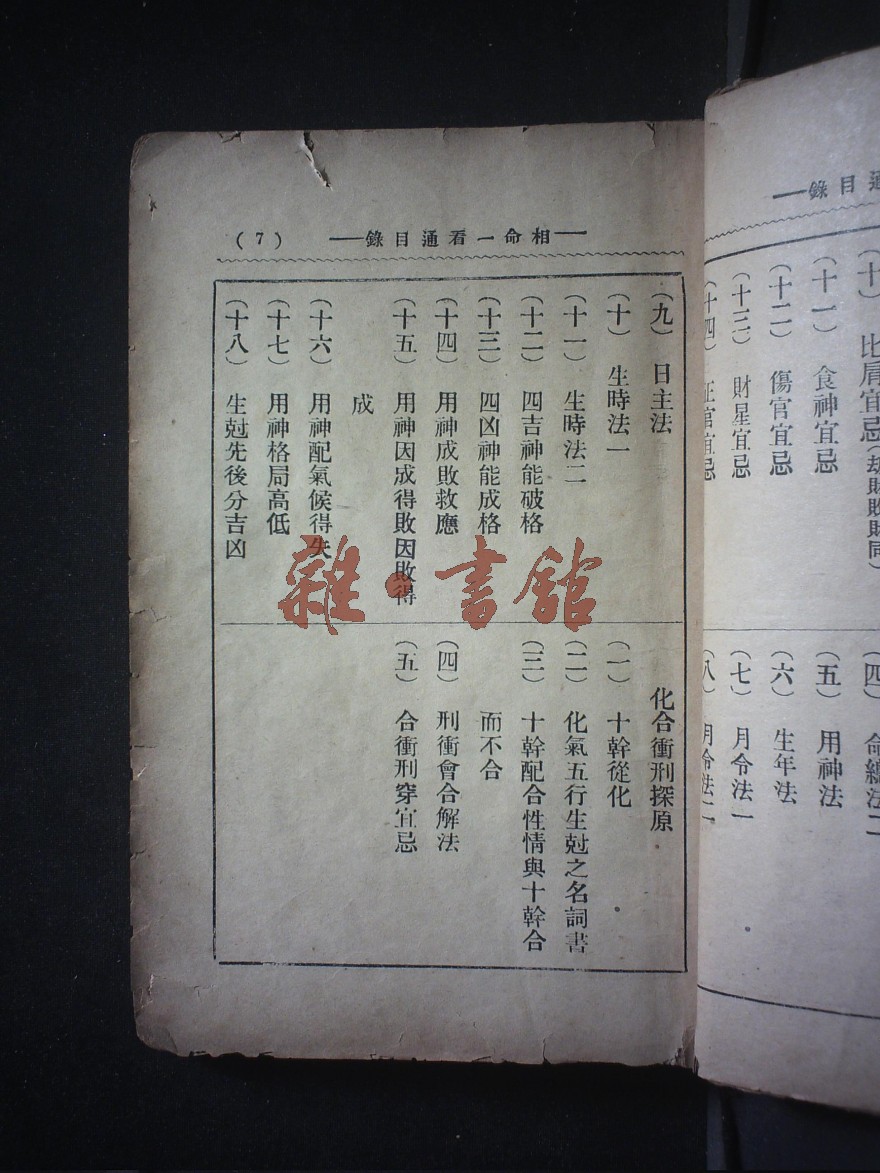 錄目通
(十) 比肩宜忌(劫財敗財同)
(十一) 食神宜忌
(十二) 傷官宜忌
(十三) 財星宜忌
(十四) 正官宜忌
(四) 命總法二
(五) 用神法
(六) 生年法
(七) 月令法一
(八) 月令法二
相命一看通目錄
(7)
(九) 日主法
(十) 生時法一
(十一) 生時法二
(十二) 四吉神能破格
(十三) 四凶神能成格
(十四) 用神成敗救應
(十五) 用神因成得敗因敗得
成
(十六) 用神配氣候得失
(十七) 用神格局高低
(十八) 生尅先後分吉凶
化合衝刑探原
(一) 十幹從化
(二) 化氣五行生尅之名詞書
(三) 十幹配合性情與十幹合
而不合
(四) 刑衝會合解法
(五) 合衝刑穿宜忌
雜·書館